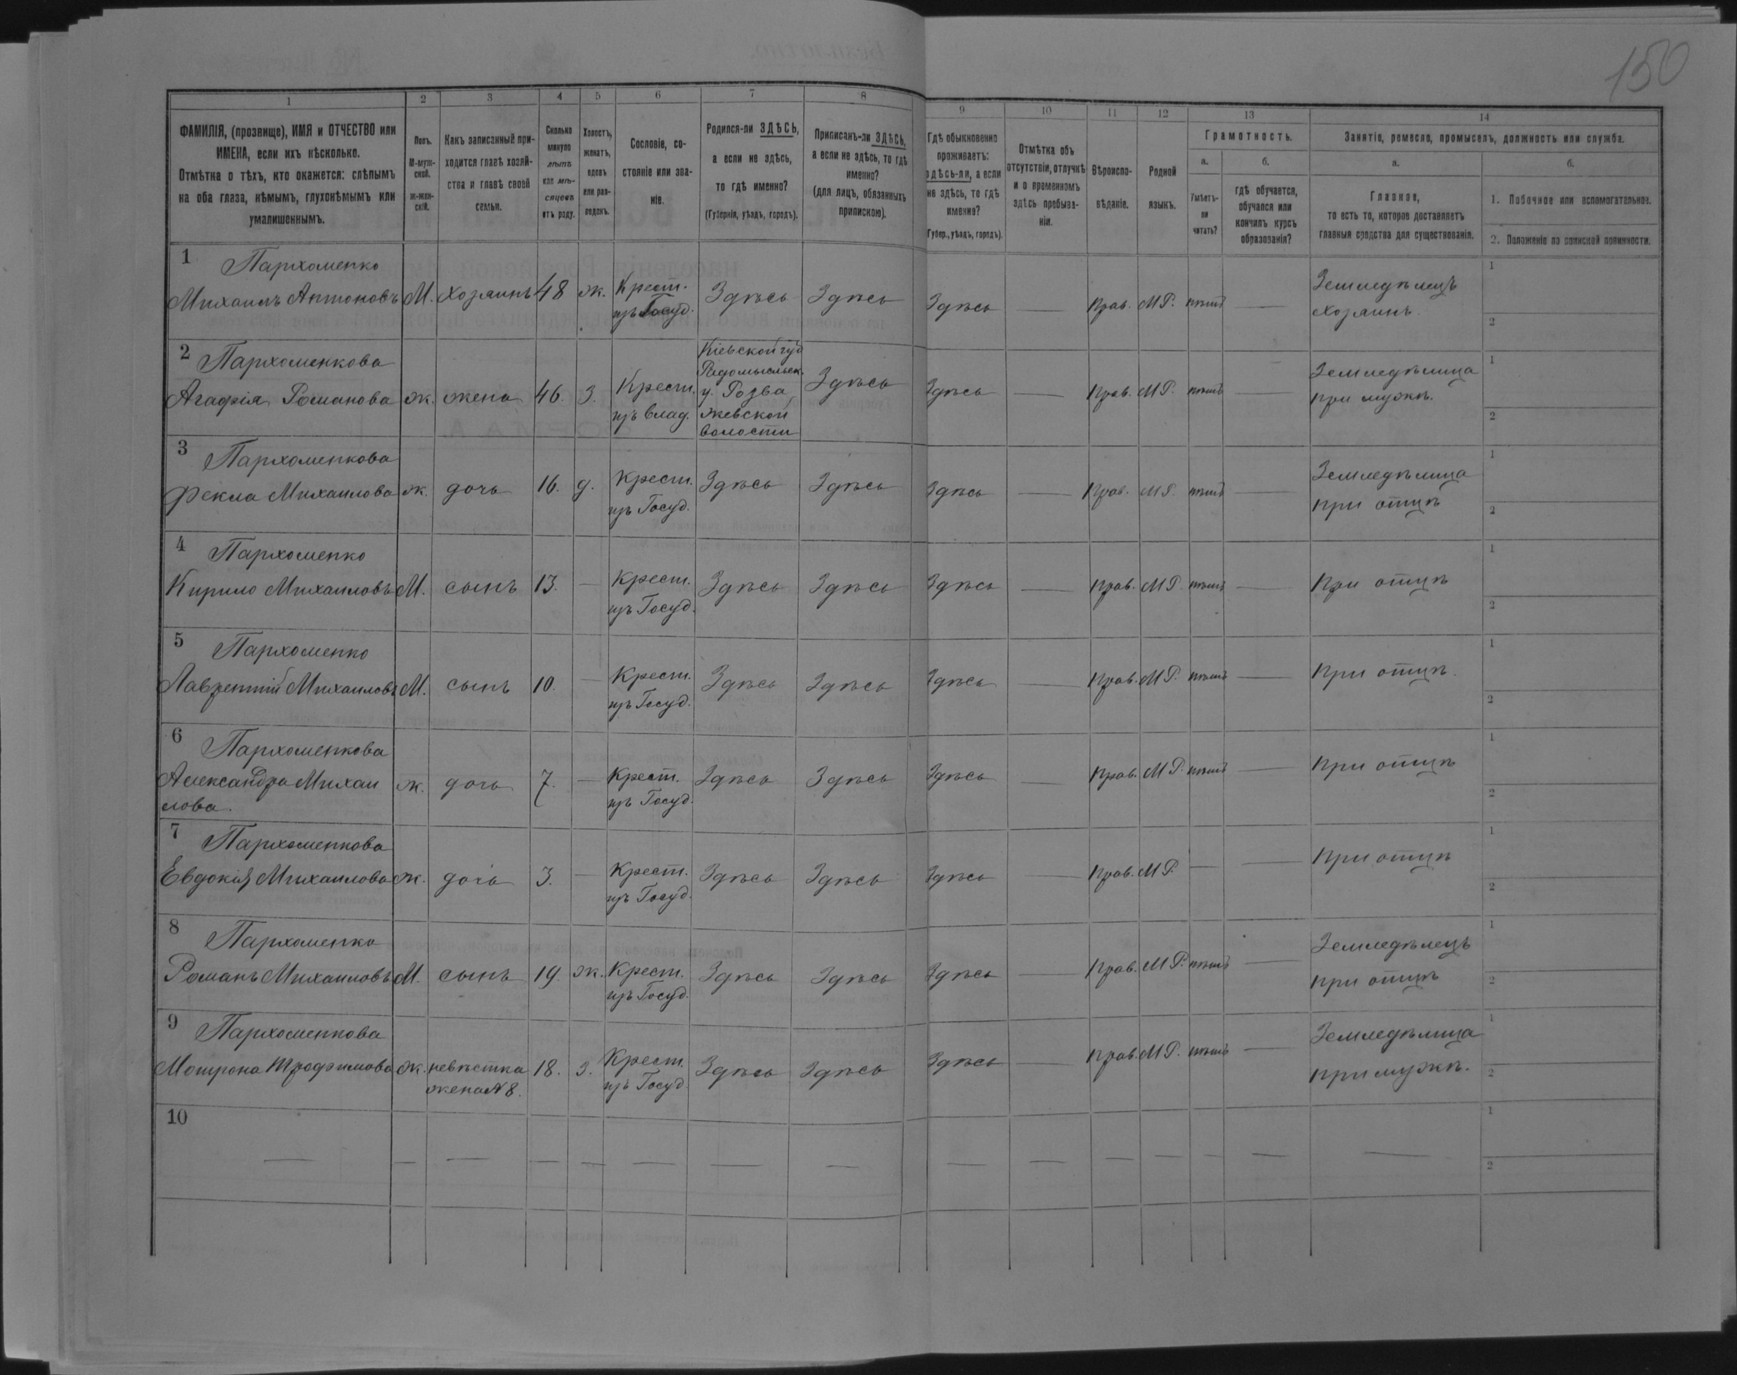 150
1 2 3 4 5 6 7 8 9 10 11 12 13 14
ФАМИЛІЯ, (прозвище), ИМЯ и ОТЧЕСТВО или
ИМЕНА, если ихъ нѣсколько.
Отмѣтка о тѣхъ, кто окажется: слѣпымъ
на оба глаза, нѣмымъ, глухонѣмымъ или
умалишеннымъ.
Полъ.
М-муж-
ской.
ж-жен-
скій.
Какъ записанный при-
ходится главѣ хозяй-
ства и главѣ своей
семьи.
Сколько
минуло
лѣтъ
или мѣ-
сяцевъ
отъ роду.
Холостъ,
женатъ,
вдовъ
или раз-
веденъ.
Сословіе, со-
стояніе или зва-
ніе.
Родился-ли ЗДѢСЬ,
а если не здѣсь,
то гдѣ именно?
(Губернія, уѣздъ, городъ).
Приписанъ-ли ЗДѢСЬ,
а если не здѣсь, то гдѣ
именно?
(для лицъ, обязанныхъ
припискою).
Гдѣ обыкновенно
проживаетъ:
здѣсь-ли, а если
не здѣсь, то гдѣ
именно?
(Губер., уѣздъ, городъ).
Отмѣтка объ
отсутствіи, отлучкѣ
и о временномъ
здѣсь пребыва-
ніи.
Вѣроиспо-
вѣданіе.
Родной
языкъ.
Грамотность.
а.
Умѣетъ-
ли
читать?
б.
гдѣ обучается,
обучался или
кончилъ курсъ
образованія?
Занятіе, ремесло, промыселъ, должность или служба.
а.
Главное,
то есть то, которое доставляетъ
главныя средства для существованія.
б.
1. Побочное или вспомогательное.
2. Положеніе по воинской повинности.
1 Пархоменко Крест. Земледѣлецъ 1
Михаилъ Антоновъ М. хозяинъ 48 ж. изъ Госуд. Здѣсь Здѣсь Здѣсь — Прав. М.Р. нѣтъ — хозяинъ. 2
2 Пархоменкова Кіевской губ Земледѣлица 1
Радомысльск.
Агафія Романова ж. жена 46. з. Крест. у. Розва Здѣсь Здѣсь — Прав. М.Р. нѣтъ — при мужѣ. 2
изъ влад. жевской
волости
3 Пархоменкова Крест. Земледѣлица 1
Фекла Михаилова ж. дочь 16. д. изъ Госуд. Здѣсь Здѣсь Здѣсь — Прав. М.Р. нѣтъ — при отцѣ 2
4 Пархоменко Крест. 1
Кирило Михаиловъ М. сынъ 13. — изъ Госуд. Здѣсь Здѣсь Здѣсь — Прав. М.Р. нѣтъ — При отцѣ 2
5 Пархоменко Крест. 1
Лаврентій Михаиловъ М. сынъ 10. — изъ Госуд. Здѣсь Здѣсь Здѣсь — Прав. М.Р. нѣтъ — При отцѣ. 2
6 Пархоменкова 1
Александра Михаи ж. дочь 7. — Крест. Здѣсь Здѣсь Здѣсь — Прав. М.Р. нѣтъ — При отцѣ 2
лова. изъ Госуд.
7 Пархоменкова Крест. 1
Евдокія Михаилова ж. дочь 3. — изъ Госуд. Здѣсь Здѣсь Здѣсь — Прав. М.Р. — — При отцѣ 2
8 Пархоменко Земледѣлецъ 1
Романъ Михаиловъ М. сынъ 19. ж. Крест. Здѣсь Здѣсь Здѣсь — Прав. М.Р. нѣтъ — при отцѣ 2
изъ Госуд.
9 Пархоменкова Крест. Земледѣлица 1
Мотрона Трофимова ж. невѣстка 18. з. изъ Госуд Здѣсь Здѣсь Здѣсь — Прав. М.Р. нѣтъ — при мужѣ. 2
жена N 8.
10 1
— — — — — — — — — — — — — — — 2